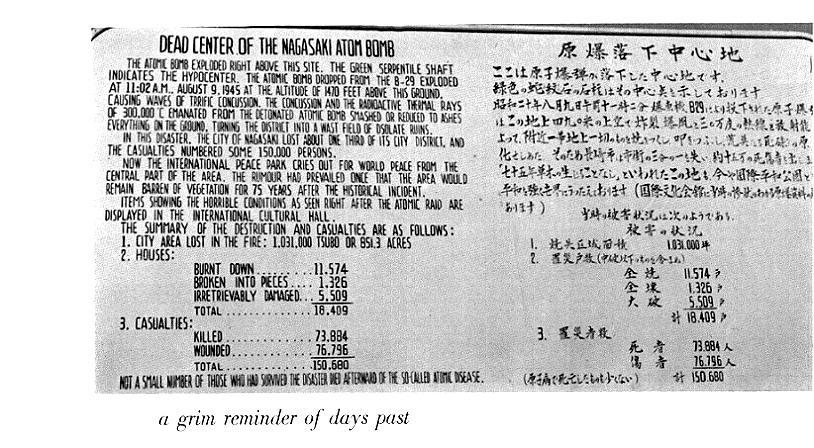 DEAD CENTER OF THE NAGASAKI ATOM BOMB
THE ATOMIC BOMB EXPLODED RIGHT ABOVE THIS SITE. THE GREEN SERPENTILE SHAFT
INDICATES THE HYPOCENTER. THE ATOMIC BOMB DROPPED FROM THE B-29 EXPLODED
AT 11:02 A.M., AUGUST 9, 1945 AT THE ALTITUDE OF 1470 FEET ABOVE THIS GROUND,
CAUSING WAVES OF TRRIFIC CONCUSSION. THE CONCUSSION AND THE RADIOACTIVE THERMAL RAYS
OF 300,000°C EMANATED FROM THE DETONATED ATOMIC BOMB SMASHED OR REDUCED TO ASHES
EVERYTHING ON THE GROUND, TURNING THE DISTRICT INTO A WAST FIELD OF DSOLATE RUINS.
IN THIS DISASTER, THE CITY OF NAGASAKI LOST ABOUT ONE THIRD OF ITS CITY DISTRICT, AND
THE CASUALTIES NUMBERED SOME 150,000 PERSONS.
NOW THE INTERNATIONAL PEACE PARK CRIES OUT FOR WORLD PEACE FROM THE
CENTRAL PART OF THE AREA. THE RUMOUR HAD PREVAILED ONCE THAT THE AREA WOULD
REMAIN BARREN OF VEGETATION FOR 75 YEARS AFTER THE HISTORICAL INCIDENT.
ITEMS SHOWING THE HORRIBLE CONDITIONS AS SEEN RIGHT AFTER THE ATOMIC RAID ARE
DISPLAYED IN THE INTERNATIONAL CULTURAL HALL.
THE SUMMARY OF THE DESTRUCTION AND CASUALTIES ARE AS FOLLOWS:
1. CITY AREA LOST IN THE FIRE: 1.031,000 TSUBO OR 851.3 ACRES
2. HOUSES:
BURNT DOWN..........11.574
BROKEN INTO PIECES.....1.326
IRRETRIEVABLY DAMAGED...5.509
TOTAL..............18.409
3. CASUALTIES:
KILLED..............73.884
WOUNDED.............76.796
TOTAL..............150.680
NOT A SMALL NUMBER OF THOSE WHO HAD SURVIVED THE DISASTER DIED AFTERWARD OF THE SO-CALLED ATOMIC DISEASE.
原爆落下中心地
ここは原子爆弾の落下した中心地です.
緑色の蛇紋石の石柱はその中心を示しております
昭和二十年八月九日午前十一時二分 B29により投下された原子爆
はこの地上四九〇米の上空で炸裂 爆風と三〇万度の熱線と放射能
よって, 附近一帯地上一切のものを焼きつくし
といわれたこの地も, 今や国際平和公園と
平和を強く世界にうったえております (国際文化会館に当時の
あります)
当時の被害状況は次のようである.
被害の状況
1. 焼失区域面積 1.031.000坪
2. 罹災戸数
全焼 11.574 戸
全壊 1.326 戸
大破 5.509 戸
計 18.409 戸
3. 罹災者数
死者 73.884 人
傷者 76.796 人
(原子病で死亡したものも少くない) 計 150.680
a grim reminder of days past